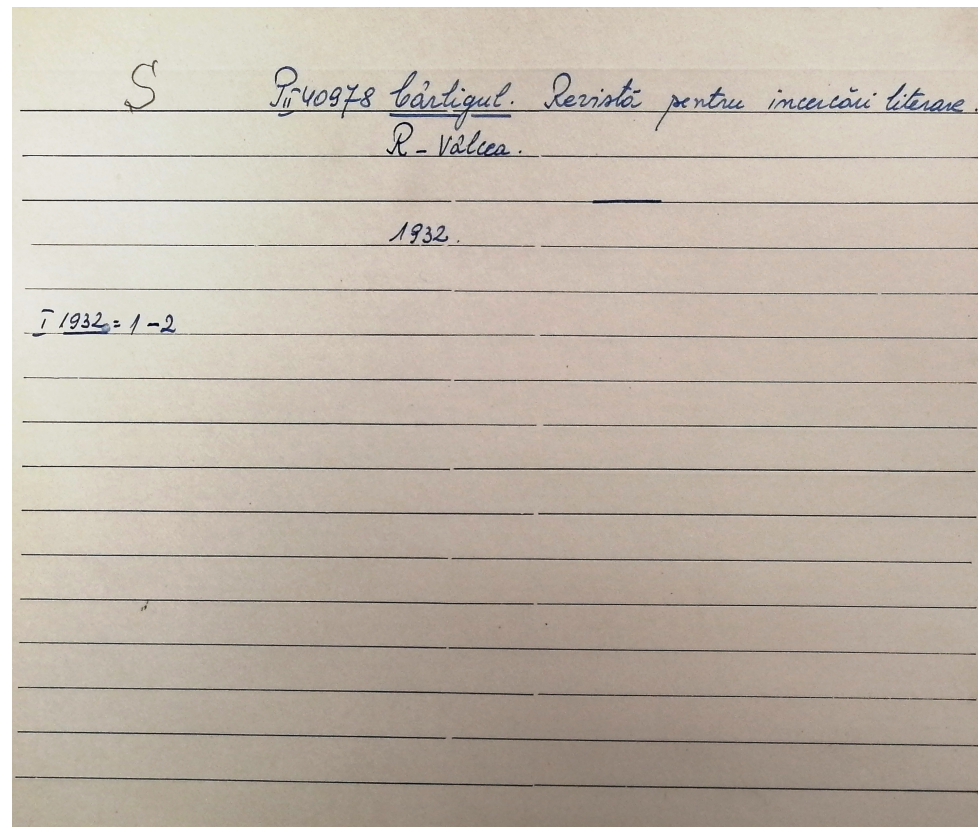 S PII 40978 Cârligul. Revistă pentru incercări literare.
R-Vâlcea.
1932.
I 1932 = 1-2